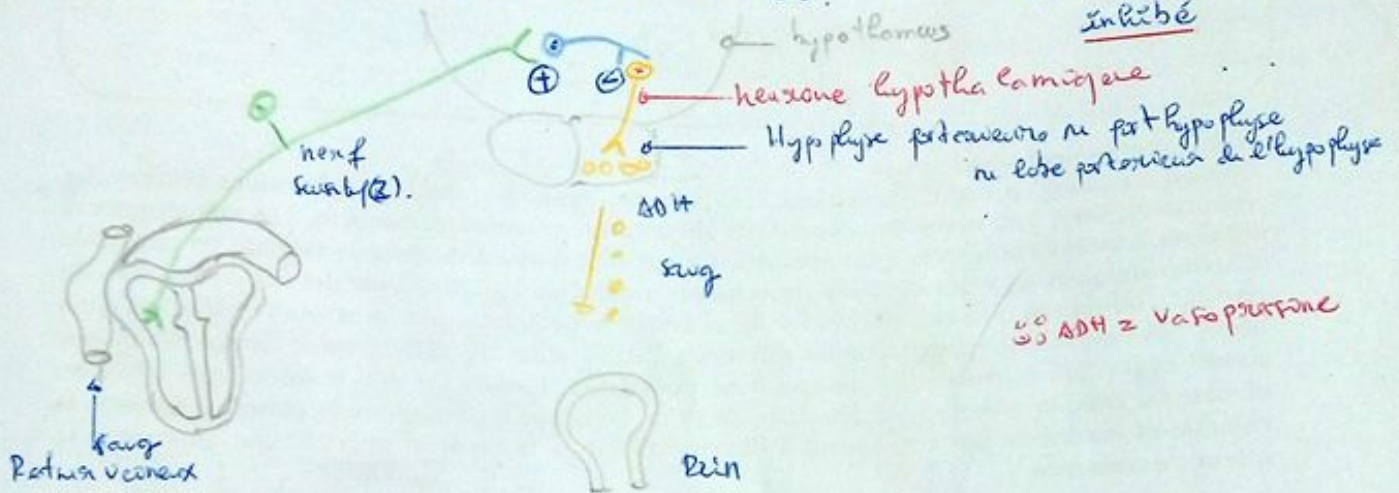 hypothomus
inhibé
neurone hypothalamique
Hypophyse posterieure ou posthypophyse
ou lobe posterieur de l'hypophyse
nerf
ADH
sang
ADH = vasopressine
sang
Retour veineux
Rein